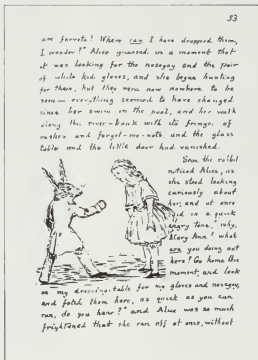 33
are ferrets! Where can I have dropped them,
I wonder?" Alice guessed in a moment that
it was looking for the nosegay and the pair
of white kid gloves, and she began hunting
for them, but they were now nowhere to be
seen — everything seemed to have changed
since her swim in the pool, and her walk
along the river-bank with its fringe of
rushes and forget-me-nots, and the glass
table and the little door had vanished.
Soon the rabbit
noticed Alice, as
she stood looking
curiously about
her, and at once
said in a quick
angry tone, "why,
Mary Ann! what
are you doing out
here? Go home this
moment, and look
on my dressing-table for my gloves and nosegay,
and fetch them here, as quick as you can
run, do you hear?" and Alice was so much
frightened that she ran off at once, without